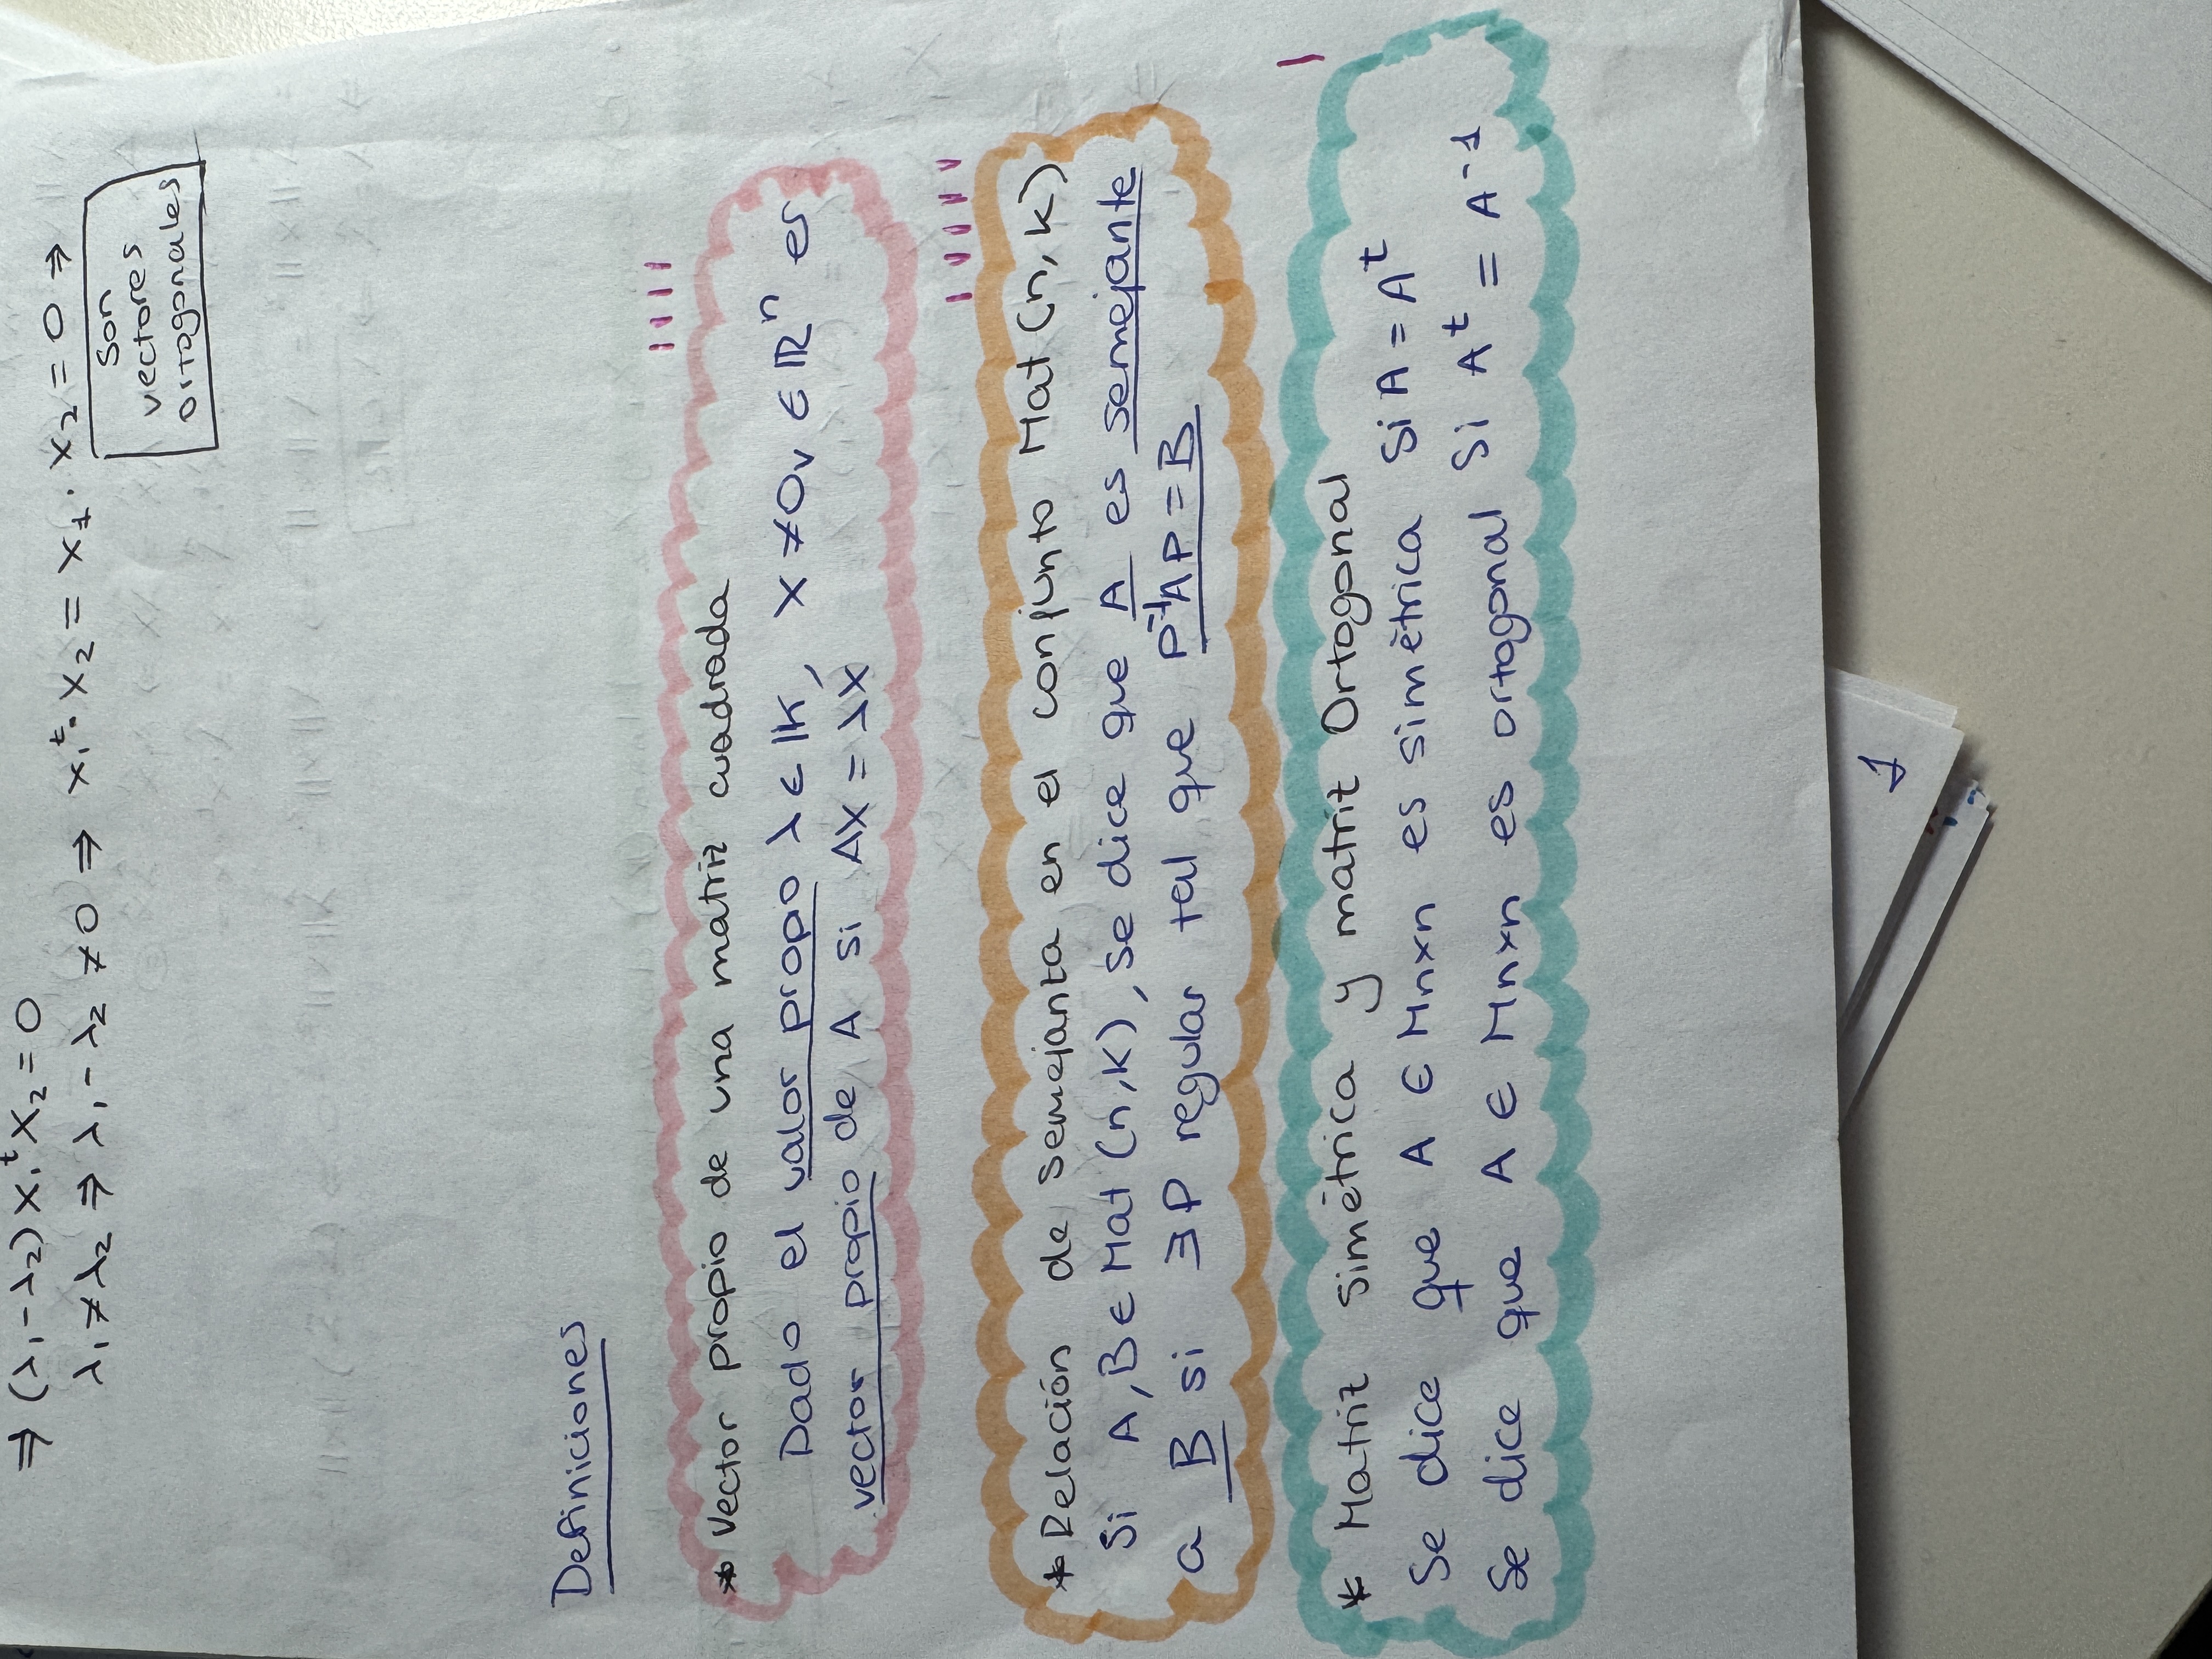 ⇒ (λ₁-λ₂)x₁ᵗx₂=0
λ₁≠λ₂ ⇒ λ₁-λ₂ ≠0 ⇒ x₁ᵗ·x₂ = x₁·x₂=0 ⇒
Son
vectores
ortogonales
Definiciones
* Vector propio de una matriz cuadrada
Dado el valor propo λ ∈ lK, X ≠0v ∈ ℝⁿ es
vector propio de A si AX = λX
* Relación de semejanza en el conjunto Mat(n,k)
Si A,B ∈ Mat (n,k), se dice que A es semejante
a B si ∃P regular tal que P⁻¹AP=B
* Matriz simétrica y matriz Ortogonal
Se dice que A ∈ Mnxn es simétrica si A=Aᵗ
Se dice que A ∈ Mnxn es ortogonal si Aᵗ = A⁻¹
1